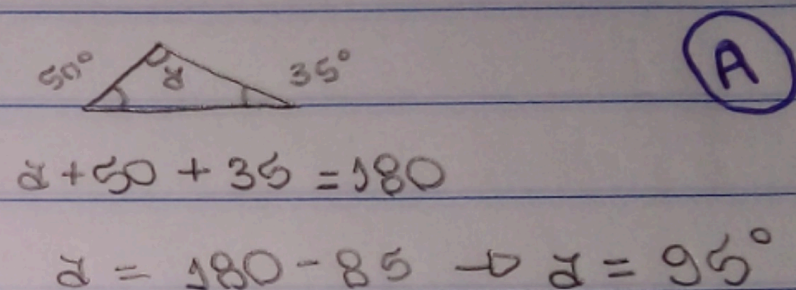 50° α 35° A
α + 50 + 35 = 180
α = 180 - 85 → α = 95°